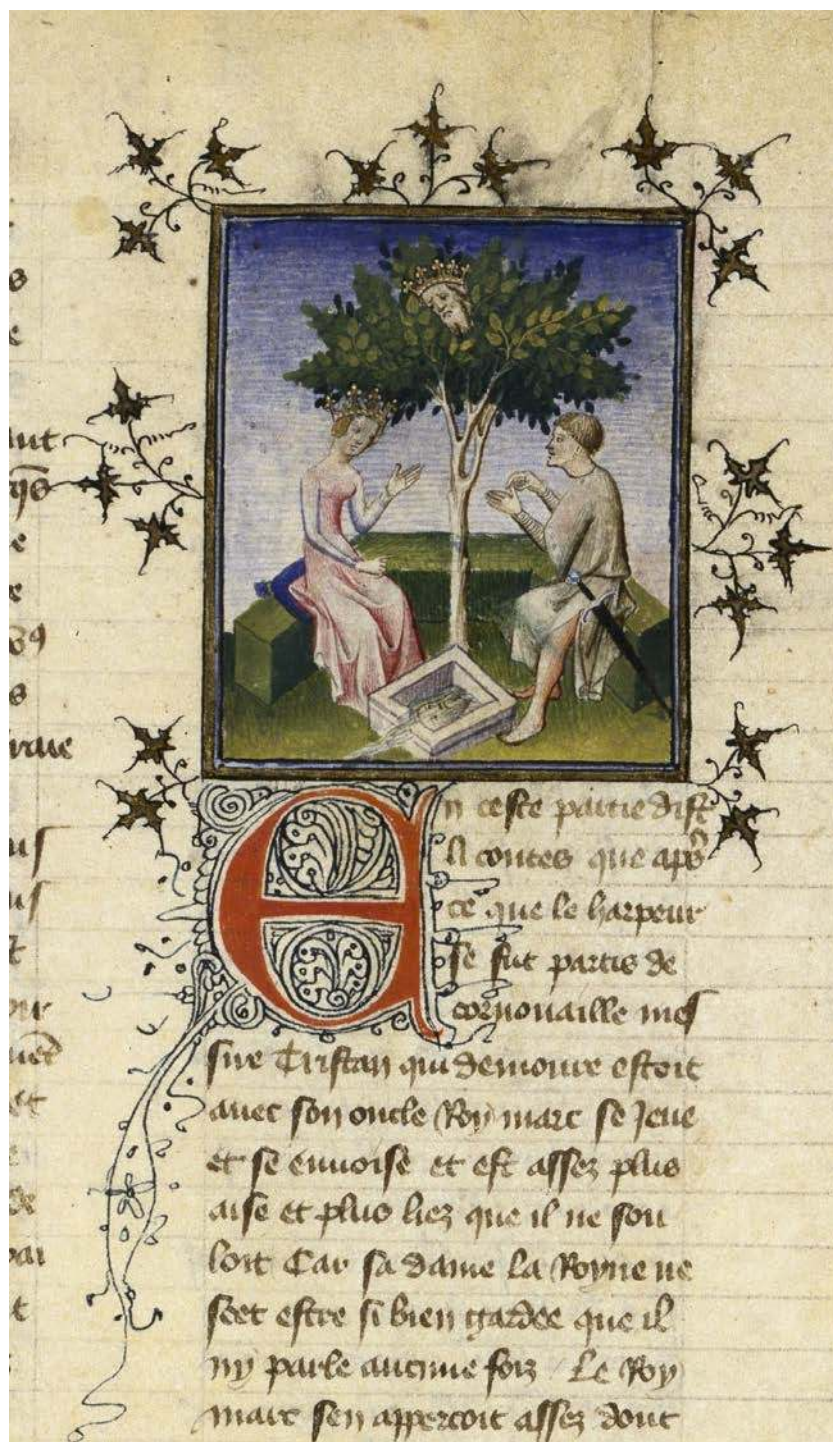 En ceste partie dist
li contes que ap̃s
ce que le harpeur
se fut partis de
cornouaille mes
sire Tristan qui demoure estoit
auec son oncle Roy marc se Jeue
et se enuoise et est assez plus
aise et plus liez que il ne sou
loit Car sa dame la Royne ne
scet estre si bien gardee que il
ny parle aucune foiz Le Roy
marc sen appercoit assez dont